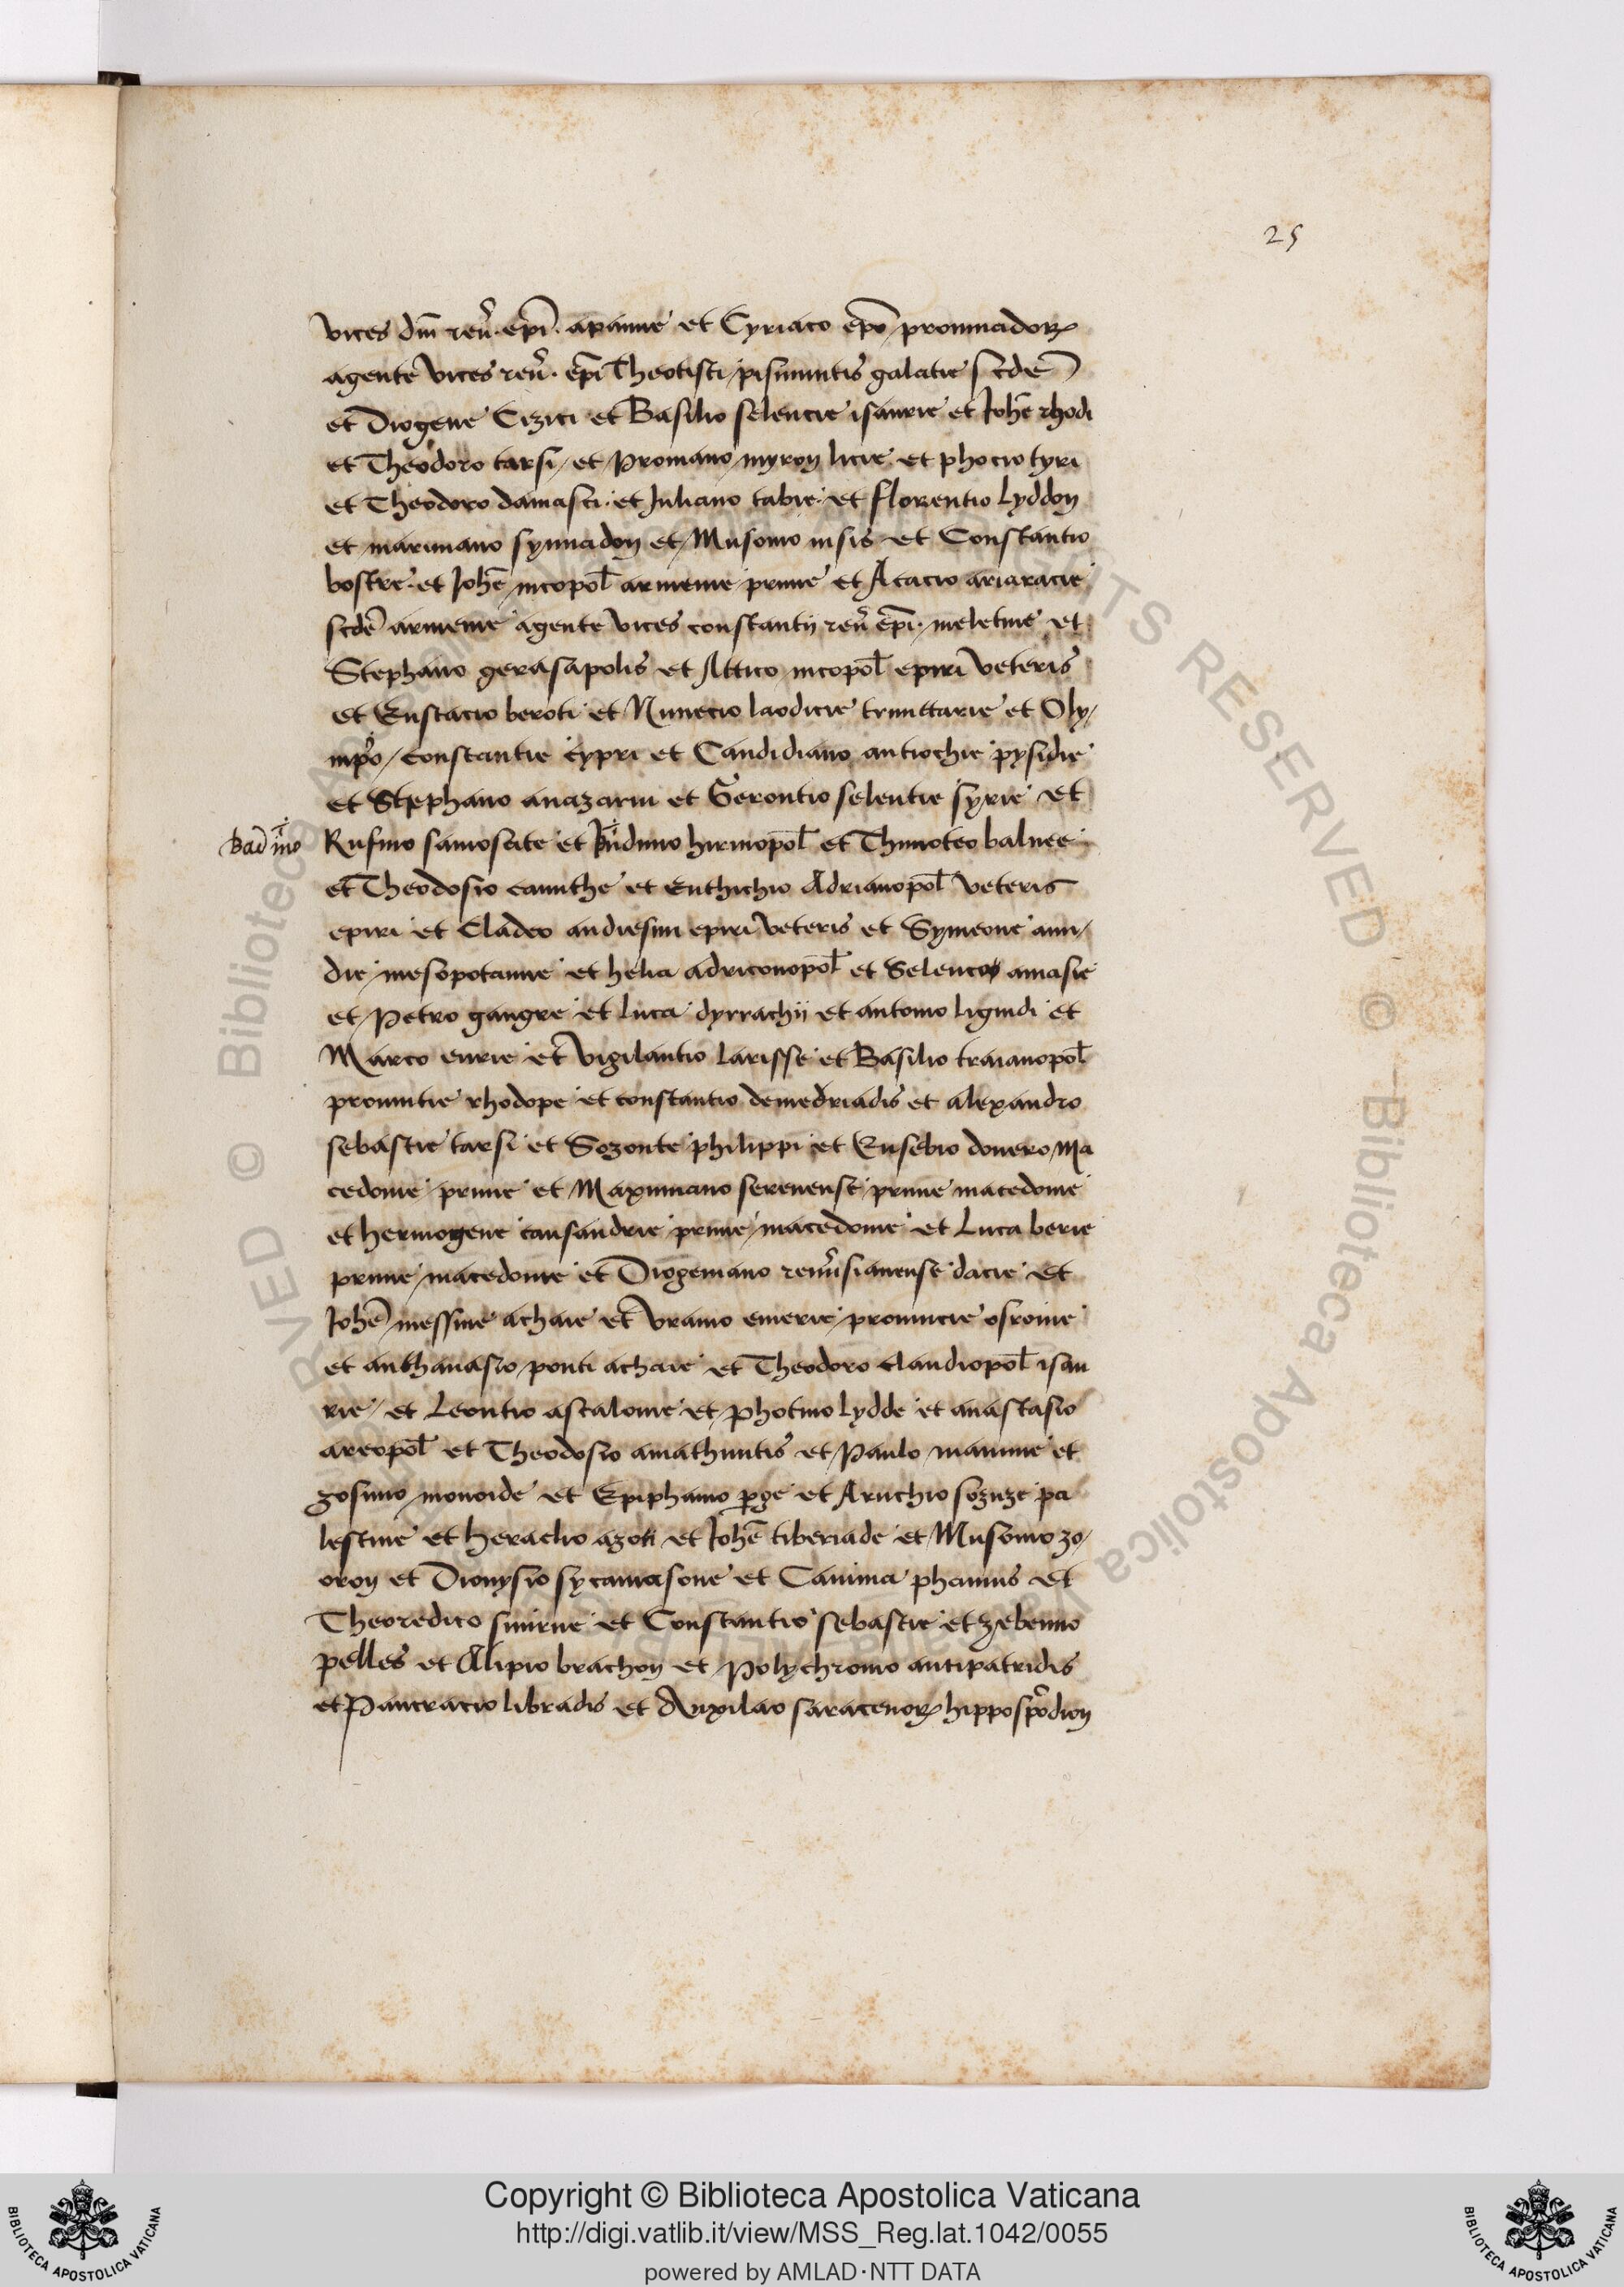 25
vices dni reu. epi. apanie et Cyriaco epo prouincialor
agente vices reu. epi Theotisti pisinuntis galatie scde
et Diogene Cizici et Basilio seleucie isaurie et Johe rhodi
et Theodoro tarsi et Promano myron licie et phocio tyri
et Theodoro damasci et Juliano tabie et florentio lyddon
et mariniano synnadon et Musonio nisis et Constantio
bostre et Johe nicopol armenie prime et Acacio ariaracie
scde armenie agente vices constantij reu epi. meletine et
Stephano gerasapolis et Attico nicopol epiri veteris
et Eustacio beroti et Nunecio laodicie trinittarie et Oly/
mpo constantie cypri et Candidiano antiochie pysidie
et Stephano anazarui et Gerontio seleutie syrie et
Rufino samosate et dimo hirinopol et Thimoteo balnee
et Theodosio canuthe et Euthichio Adrianopol veteris
epiri et Cladeo andiesmi epiri veteris et Symeone ami/
die mesopotamie et helia adriconopol et Seleuco amasie
et Petro gangre et luca dyrrachij et antonio lignidi et
Marco eurie et vigilantio larisse et Basilio traianopol
prouintie rhodope et constantio demedriadis et alexandro
sebastie tarsi et Sozonte philippi et Eusebio donero Ma
cedonie prime et Maximiano serenense prime macedonie
et hermogene causandrie prime macedonie et Luca berie
prime macedonie et Diogeniano remsianense dacie et
Johe messine achaie et vranio emerie prouincie osroine
et anthanasio ponti achaie et Theodoro claudiopol isau
rie et Leontio ascalonie et photino lydde et anastasio
areopol et Theodosio amathuntis et Paulo maiume et
zosimo monoide et Epiphanio pge et Aruchio sozuze pa
lestine et heraclio azoti et Johe tiberiade et Musonio zo/
oron et Dionysio sycamasone et Caiuma phamis et
Theoredico smirne et Constantio sebastie et zebenno
pelles et Alipio brachon et Polychronio antipatridis
et Pancracio libradis et Auxilao saracenor hippospodion
Copyright © Biblioteca Apostolica Vaticana
http://digi.vatlib.it/view/MSS_Reg.lat.1042/0055
powered by AMLAD·NTT DATA